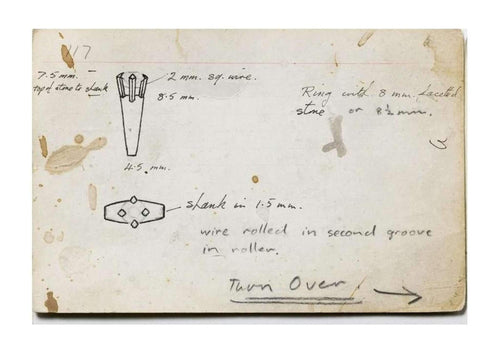 117
7.5 mm.
top of stone to shank
2 mm. sq. wire.
8.5 mm.
Ring with 8 mm. faceted
stone or 8½ mm.
4.5. mm.
shank in 1.5 mm.
wire rolled in second groove
in roller.
Turn Over